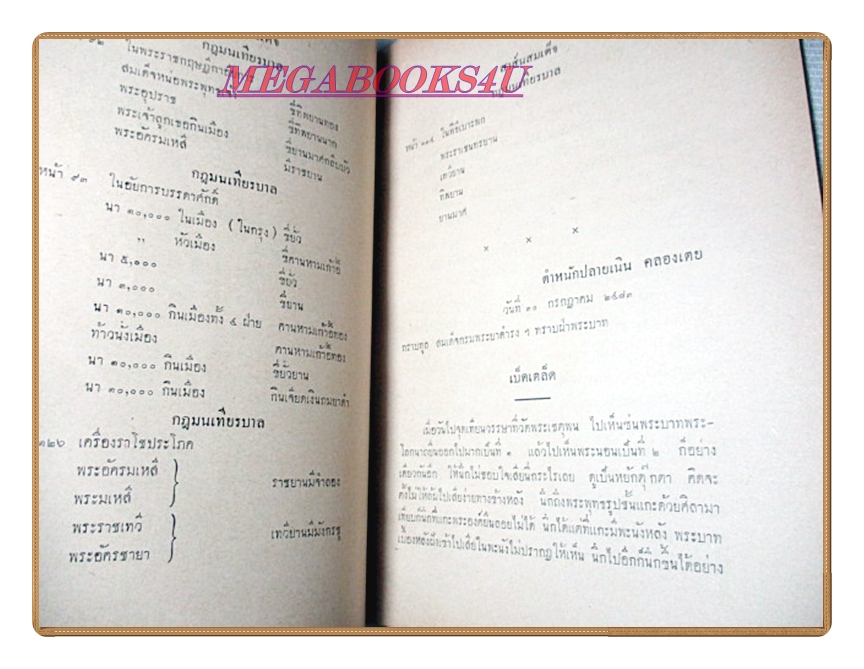 กฎมนเทียรบาล
๙๒ ในพระราชกฤษฎีการ
สมเด็จหน่อพระพุทธ
MEGABOOKS4U
พระอุปราช ขี่ทิพยานทอง
พระเจ้าลูกเธอกินเมือง ขี่ทิพยานนาก
พระอัครมเหสี ขี่ยานมาศกลีบบัว
มีราชยาน
กฎมนเทียรบาล
หน้า ๙๓ ในอัยการบรรดาศักดิ์
นา ๑๐,๐๐๐ ในเมือง (ในกรุง) ขี่ยั่ว
" หัวเมือง ขี่คานหามเก้าอี้
นา ๕,๐๐๐ ขี่ยั่ว
นา ๓,๐๐๐ ขี่ยาน
นา ๑๐,๐๐๐ กินเมืองทั้ง ๔ ฝ่าย คานหามเก้าอี้ทอง
ท้าวนั่งเมือง คานหามเก้าอี้ทอง
นา ๑๐,๐๐๐ กินเมือง ขี่ยั่วยาน
นา ๑๐,๐๐๐ กินเมือง กินเจียดเงินถมยาดำ
กฎมนเทียรบาล
๑๒๖ เครื่องราโชประโภค
พระอัครมเหสี
พระมเหสี ราชยานมีจำลอง
พระราชเทวี
พระอัครชายา เทวียานมีมังกรชู
สาส์นสมเด็จ
กฎมนเทียรบาล
หน้า ๑๑๔ ในพิธีเบาะพก
พระราเชนทรยาน
เทวียาน
ทิพยาน
ยานมาศ
× × ×
ตำหนักปลายเนิน คลองเตย
วันที่ ๑๐ กรกฎาคม ๒๔๘๓
กราบทูล สมเด็จกรมพระยาดำรง ฯ ทราบฝ่าพระบาท
เบ็ดเตล็ด
เมื่อวันไปจุดเทียนวรรษาที่วัดพระเชตุพน ไปเห็นซ่นพระบาทพระ-
โลกนาถยื่นออกไปมากเป็นที่ ๑ แล้วไปเห็นพระนอนเป็นที่ ๒ ก็อย่าง
เดียวกันอีก ให้นึกไม่ชอบใจเสียนี่กระไรเลย ดูเป็นหยักตุ๊กตา คิดจะ
ตั้งไม่ให้ล้มไปเสียง่ายทางข้างหลัง นึกถึงพระพุทธรูปชั้นแกะด้วยศิลามา
เทียบก็นึกที่แกะพระองค์ยืนลอยไม่ได้ นึกได้แต่ที่แกะมีพะนังหลัง พระบาท
เบื้องหลังฝังเข้าไปเสียในพะนังไม่ปรากฏให้เห็น นึกไปอีกก็นึกขึ้นได้อย่าง